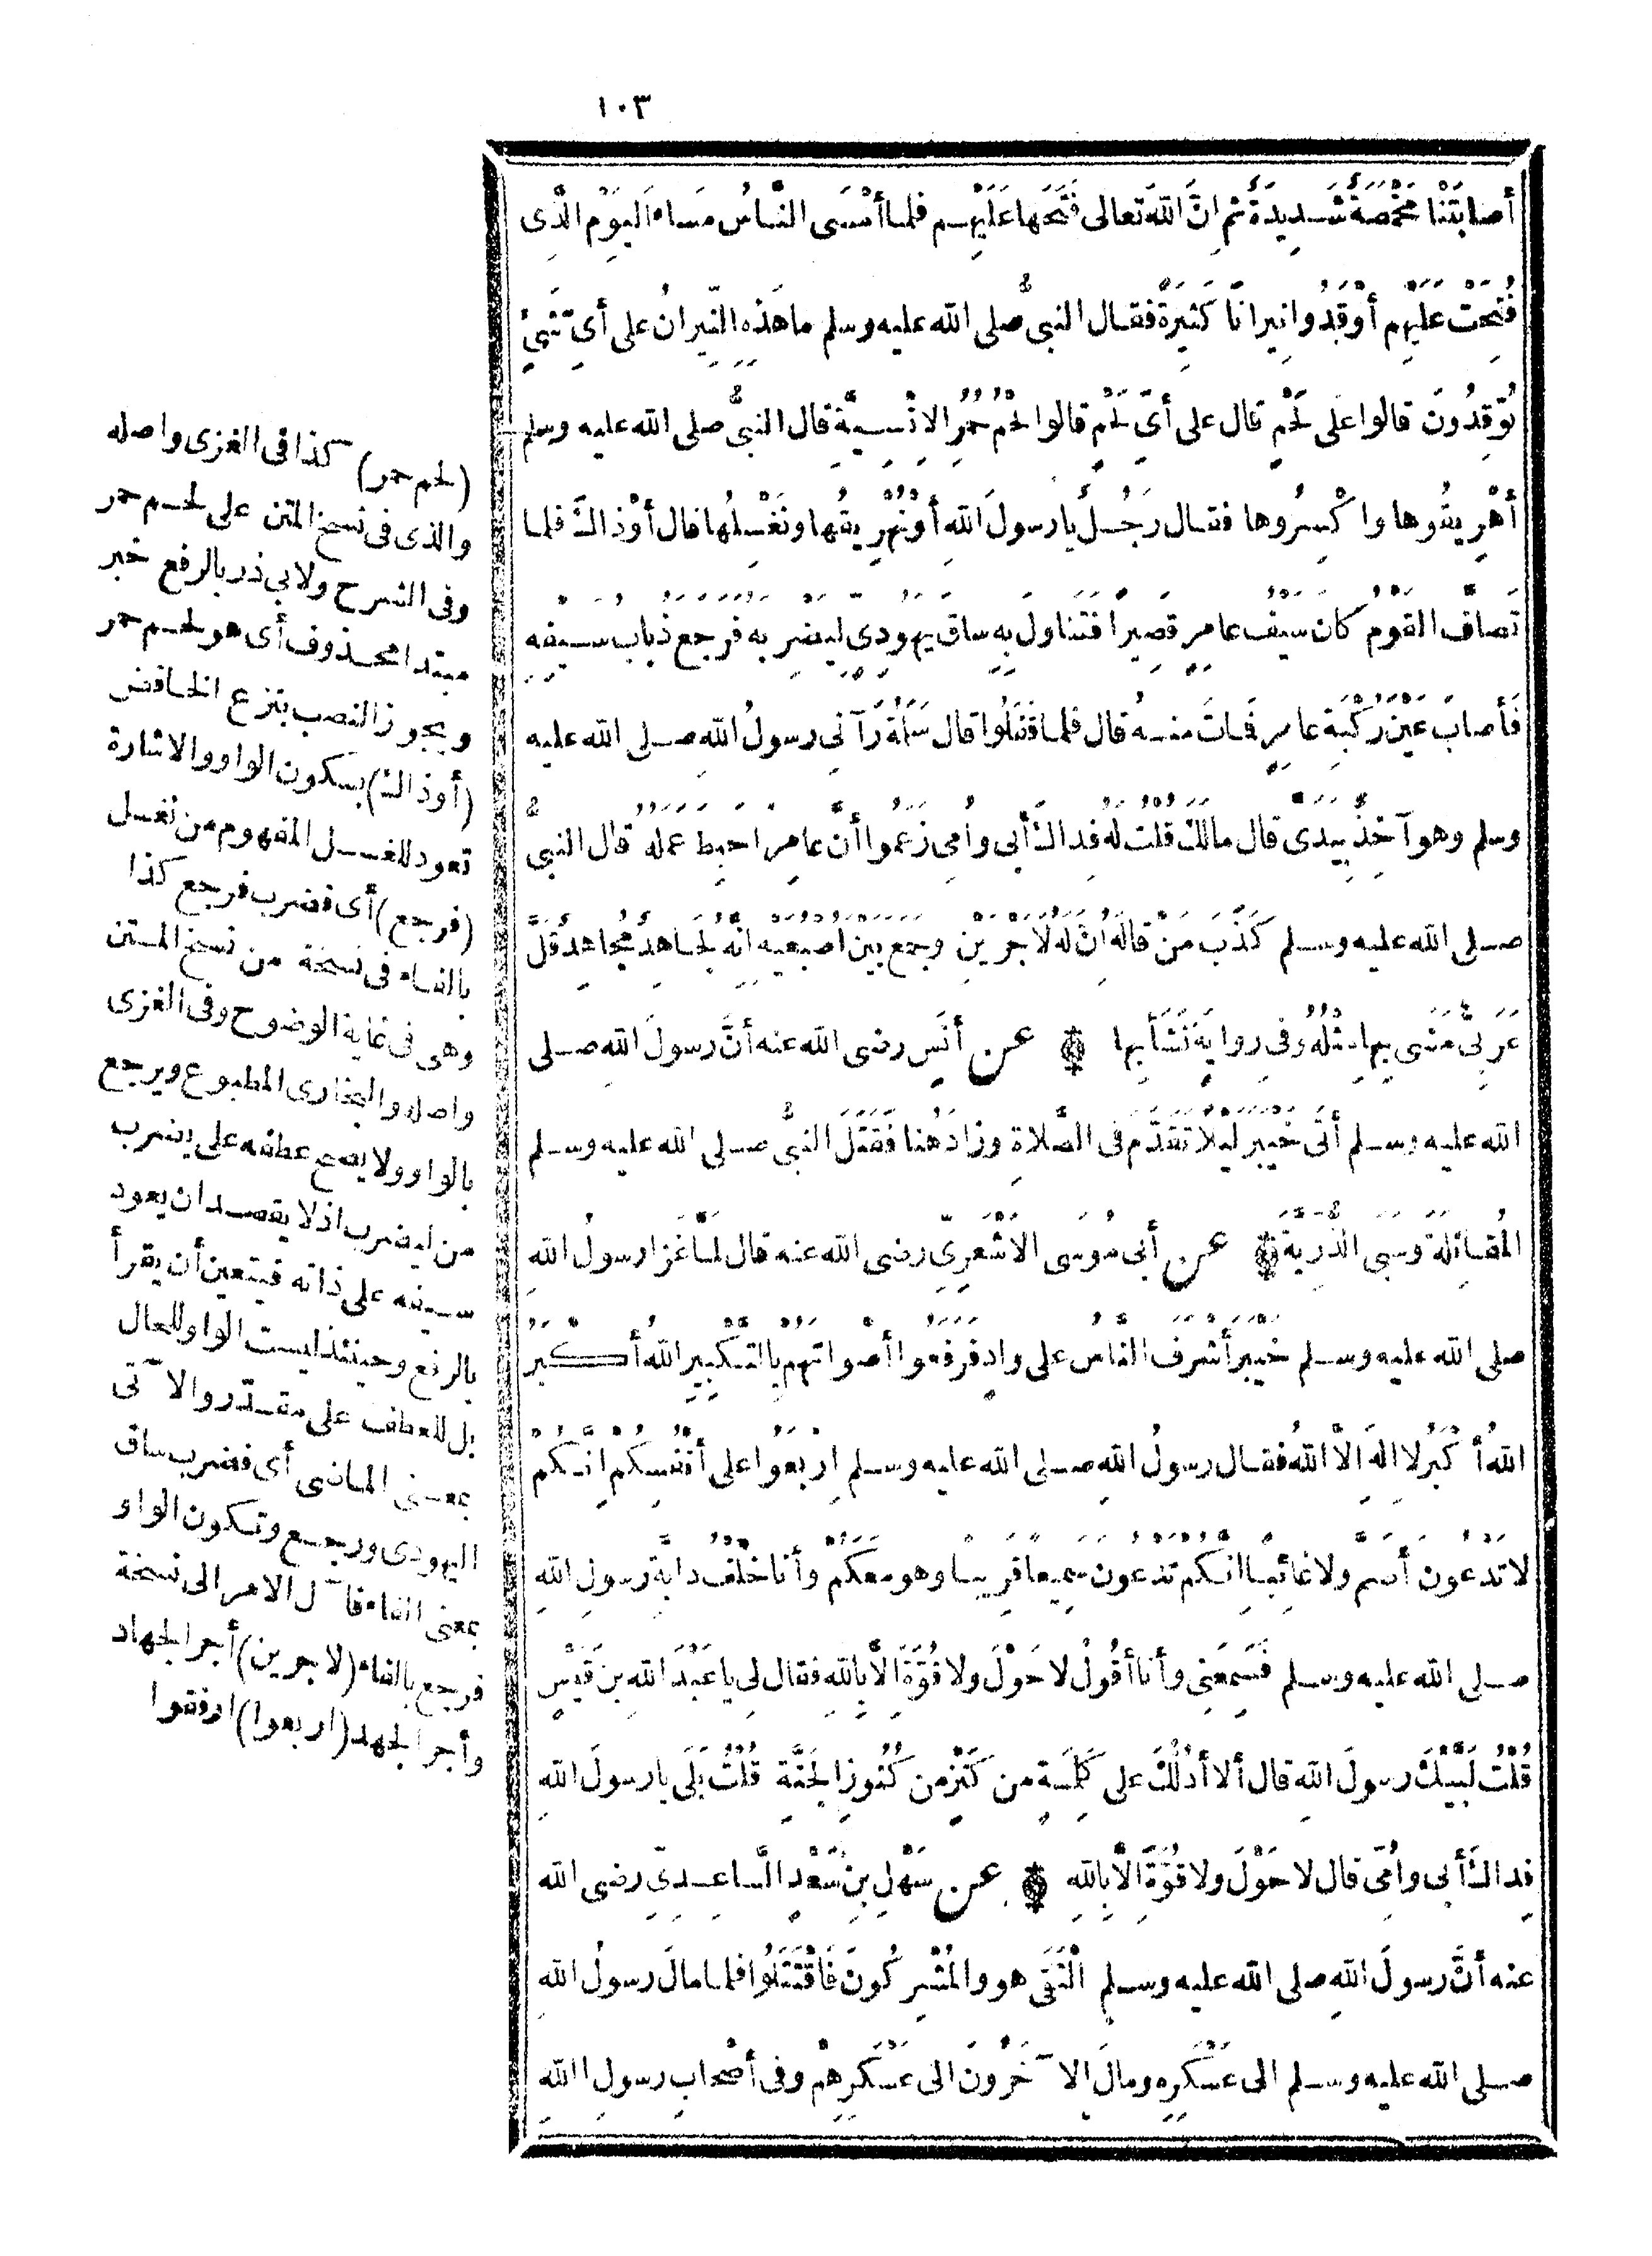 ١٠٣
أصابَتْنا مَخْمَصَةٌ شَدِيدَةٌ ثم اِنَّ اللهَ تعالى فَتَحَها عَلَيْهِم فلما أَمْسَى النَّاسُ مَساءَ اليَوْمِ الَّذِى
فُتِحَتْ عَلَيْهِم أَوْقَدُوا نِيرانًا كَثِيرَةً فقال النبىُّ صلى الله عليه وسلم ما هَذِهِ النِّيرانُ على أىِّ شَىْءٍ
تُوقِدُونَ قالوا على لَحْمٍ قال على أىِّ لَحْمٍ قالوا لَحْمُ حُمُرِ الاِنْسِيَّةِ قال النبىُّ صلى الله عليه وسلم
أَهْرِيقُوها واكْسِرُوها فقال رَجُلٌ يا رسولَ اللهِ أَوْ نُهَرِيقُها ونَغْسِلُها قال أَوْ ذاكَ فلما
تَصافَّ القَوْمُ كان سَيْفُ عامِرٍ قَصِيرًا فتَناوَلَ بِهِ ساقَ يَهُودِىٍّ لِيَضْرِبَهُ فرجع ذُبابُ سَيْفِهِ
فَأصابَ عَيْنَ رُكْبَةِ عامِرٍ فَماتَ منهُ قال فلما قَفَلُوا قال سَلَمَةُ رَآنِى رسولُ اللهِ صلى الله عليه
وسلم وهو آخِذٌ بِيَدَىَّ قال مالَكَ قلتُ له فِداكَ أبى وأُمِى زَعَمُوا أنَّ عامِرًا حَبِطَ عَمَلُهُ قال النبىُّ
صلى الله عليه وسلم كَذَبَ مَنْ قالَهُ اِنَّ لَهُ لَاَجْرَيْنِ وجمع بين اصْبَعَيْهِ انَّهُ لَجاهِدٌ مُجاهِدٌ قَلَّ
عَرَبِىٌّ مَشَى بِها مِثْلُهُ وفى رِوايَةٍ نَشَأَ بِها ۞ عن أنَسٍ رضى الله عنه أنَّ رسولَ اللهِ صلى
الله عليه وسلم أتَى خَيْبَرَ لَيْلًا تَقَدَّمَ فى الصَّلاةِ وزادَ هُنا فَقَتَلَ النبىُّ صلى الله عليه وسلم
المُقاتِلَةَ وسَبَى الذُّرِّيَّةَ ۞ عن أبى مُوسَى الاَشْعَرِىِّ رضى الله عنه قال لَمَّا غَزا رسولُ اللهِ
صلى الله عليه وسلم خَيْبَرَ أَشْرَفَ الناسُ على وادٍ فَرَفَعُوا أصْواتَهُم بِالتَّكْبِيرِ اللهُ أَكْبَرُ
اللهُ أَكْبَرُ لا الهَ الاَّ اللهُ فقال رسولُ اللهِ صلى الله عليه وسلم ارْبَعُوا على أَنْفُسِكُمْ اِنَّكُمْ
لا تَدْعُونَ أصَمَّ ولا غائِبًا اِنَّكُم تَدْعُونَ سَمِيعًا قَرِيبًا وهو مَعَكُمْ وأنا خَلْفَ دابَّةِ رسولِ اللهِ
صلى الله عليه وسلم فَسَمِعَنِى وأنا أَقُولُ لا حَوْلَ ولا قُوَّةَ اِلاَّ بِاللهِ فقال لِى يا عَبْدَ الله بن قَيْسٍ
قُلْتُ لَبَّيْكَ رسولَ اللهِ قال ألا أدُلُّكَ على كَلِمَةٍ من كَنْزٍ من كُنُوزِ الجَنَّةِ قُلْتُ بَلَى يا رسولَ اللهِ
فِداكَ أبى وأُمِّى قال لا حَوْلَ ولا قُوَّةَ الاَّ بِاللهِ ۞ عن سَهْلِ بنِ سَعْدٍ السَّاعِدِىِّ رضى الله
عنه أنَّ رسولَ اللهِ صلى الله عليه وسلم الْتَقَى هو والمُشْرِكُونَ فَاقْتَتَلُوا فلما مالَ رسولُ اللهِ
صلى الله عليه وسلم الى عَسْكَرِهِ ومالَ الآخَرُونَ الى عَسْكَرِهِمْ وفى أَصْحابِ رسولِ اللهِ
(لحم حمر) كذا فى الغزى واصله
والذى فى نسخ المتن على لحم حمر
وفى الشرح ولابى ذر بالرفع خبر
مبتدا محذوف أى هو لحم حمر
ويجوز النصب بنزع الخافض
(أوذاك) بسكون الواو والاشارة
تعود للغسل المفهوم من نغسل
(فرجع) أى فضرب فرجع كذا
بالفاء فى نسخة من نسخ المتن
وهى فى غاية الوضوح وفى الغزى
واصله والبخارى المطبوع ويرجع
بالواو ولا يصح عطفه على يضرب
من ليضرب اذ لا يقصد ان يعود
سيفه على ذاته فيتعين أن يقرأ
بالرفع وحينئذ ليست الواو للحال
بل للعطف على مقدّر والآتى
بمعنى الماضى أى فضرب ساق
اليهودى ورجع وتكون الواو
بمعنى الفاء فآل الامر الى نسخة
فرجع بالفاء (لاجرين) أجر الجهاد
وأجر الجهد (اربعوا) ارفقوا